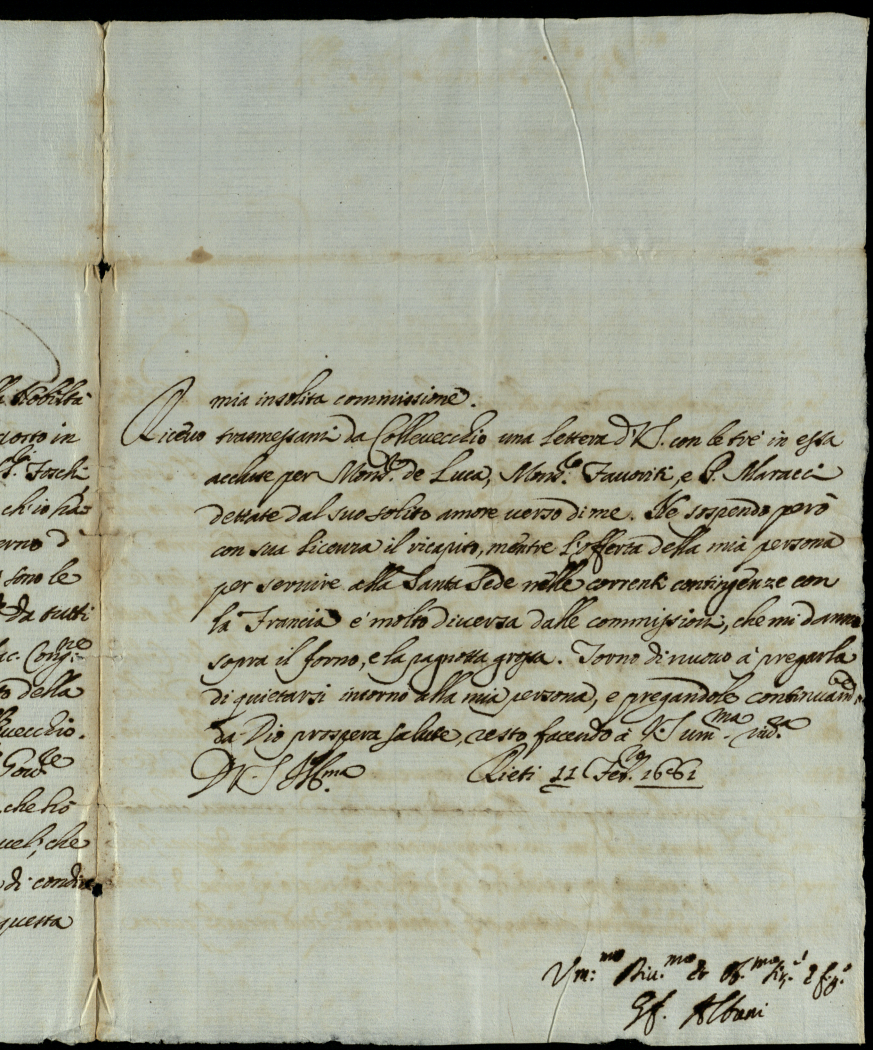 à Nobiltà
posto in
S.r Foschi
ch'io hà-
erno d
sono le
Da tutti
ac. Cong.ne
to della
levecchio.
Gov.re
che hò
quel, che
di condit
questa
mia insolita commissione.
Ricevo trasmessami da Collevecchio una lettera di V.S. con le tre in essa
accluse per Mons.r de Luca, Mons.re Favoriti, e P. Maracci
dettate dal suo solito amore verso di me. Ne sospendo però
con sua licenza il ricapito, mentre l'offerta della mia persona
per servire alla Santa Sede nelle correnti contingenze con
la Francia è molto diversa dalle commissioni, che mi danno
sopra il forno, e la pagnotta grossa. Torno di nuovo à pregarla
di quietarsi intorno alla mia persona, e pregandole
da Dio prospera salute, resto facendo à V.S. um.ma
D V.S. Ill.ma Rieti 11 Feb.
Um:mo Div.mo et Ob.mo
Gf. Albani